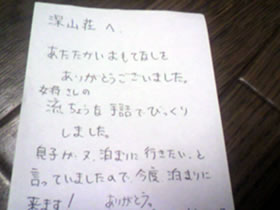 深山荘 へ.
あたたかいおもてなしを
ありがとうございました。
女将さんの
流ちょうな手話でびっくり
しました。
息子が、又、泊まりに行きたい、と
言っていましたので、今度、泊まりに
来ます! ありがとう。